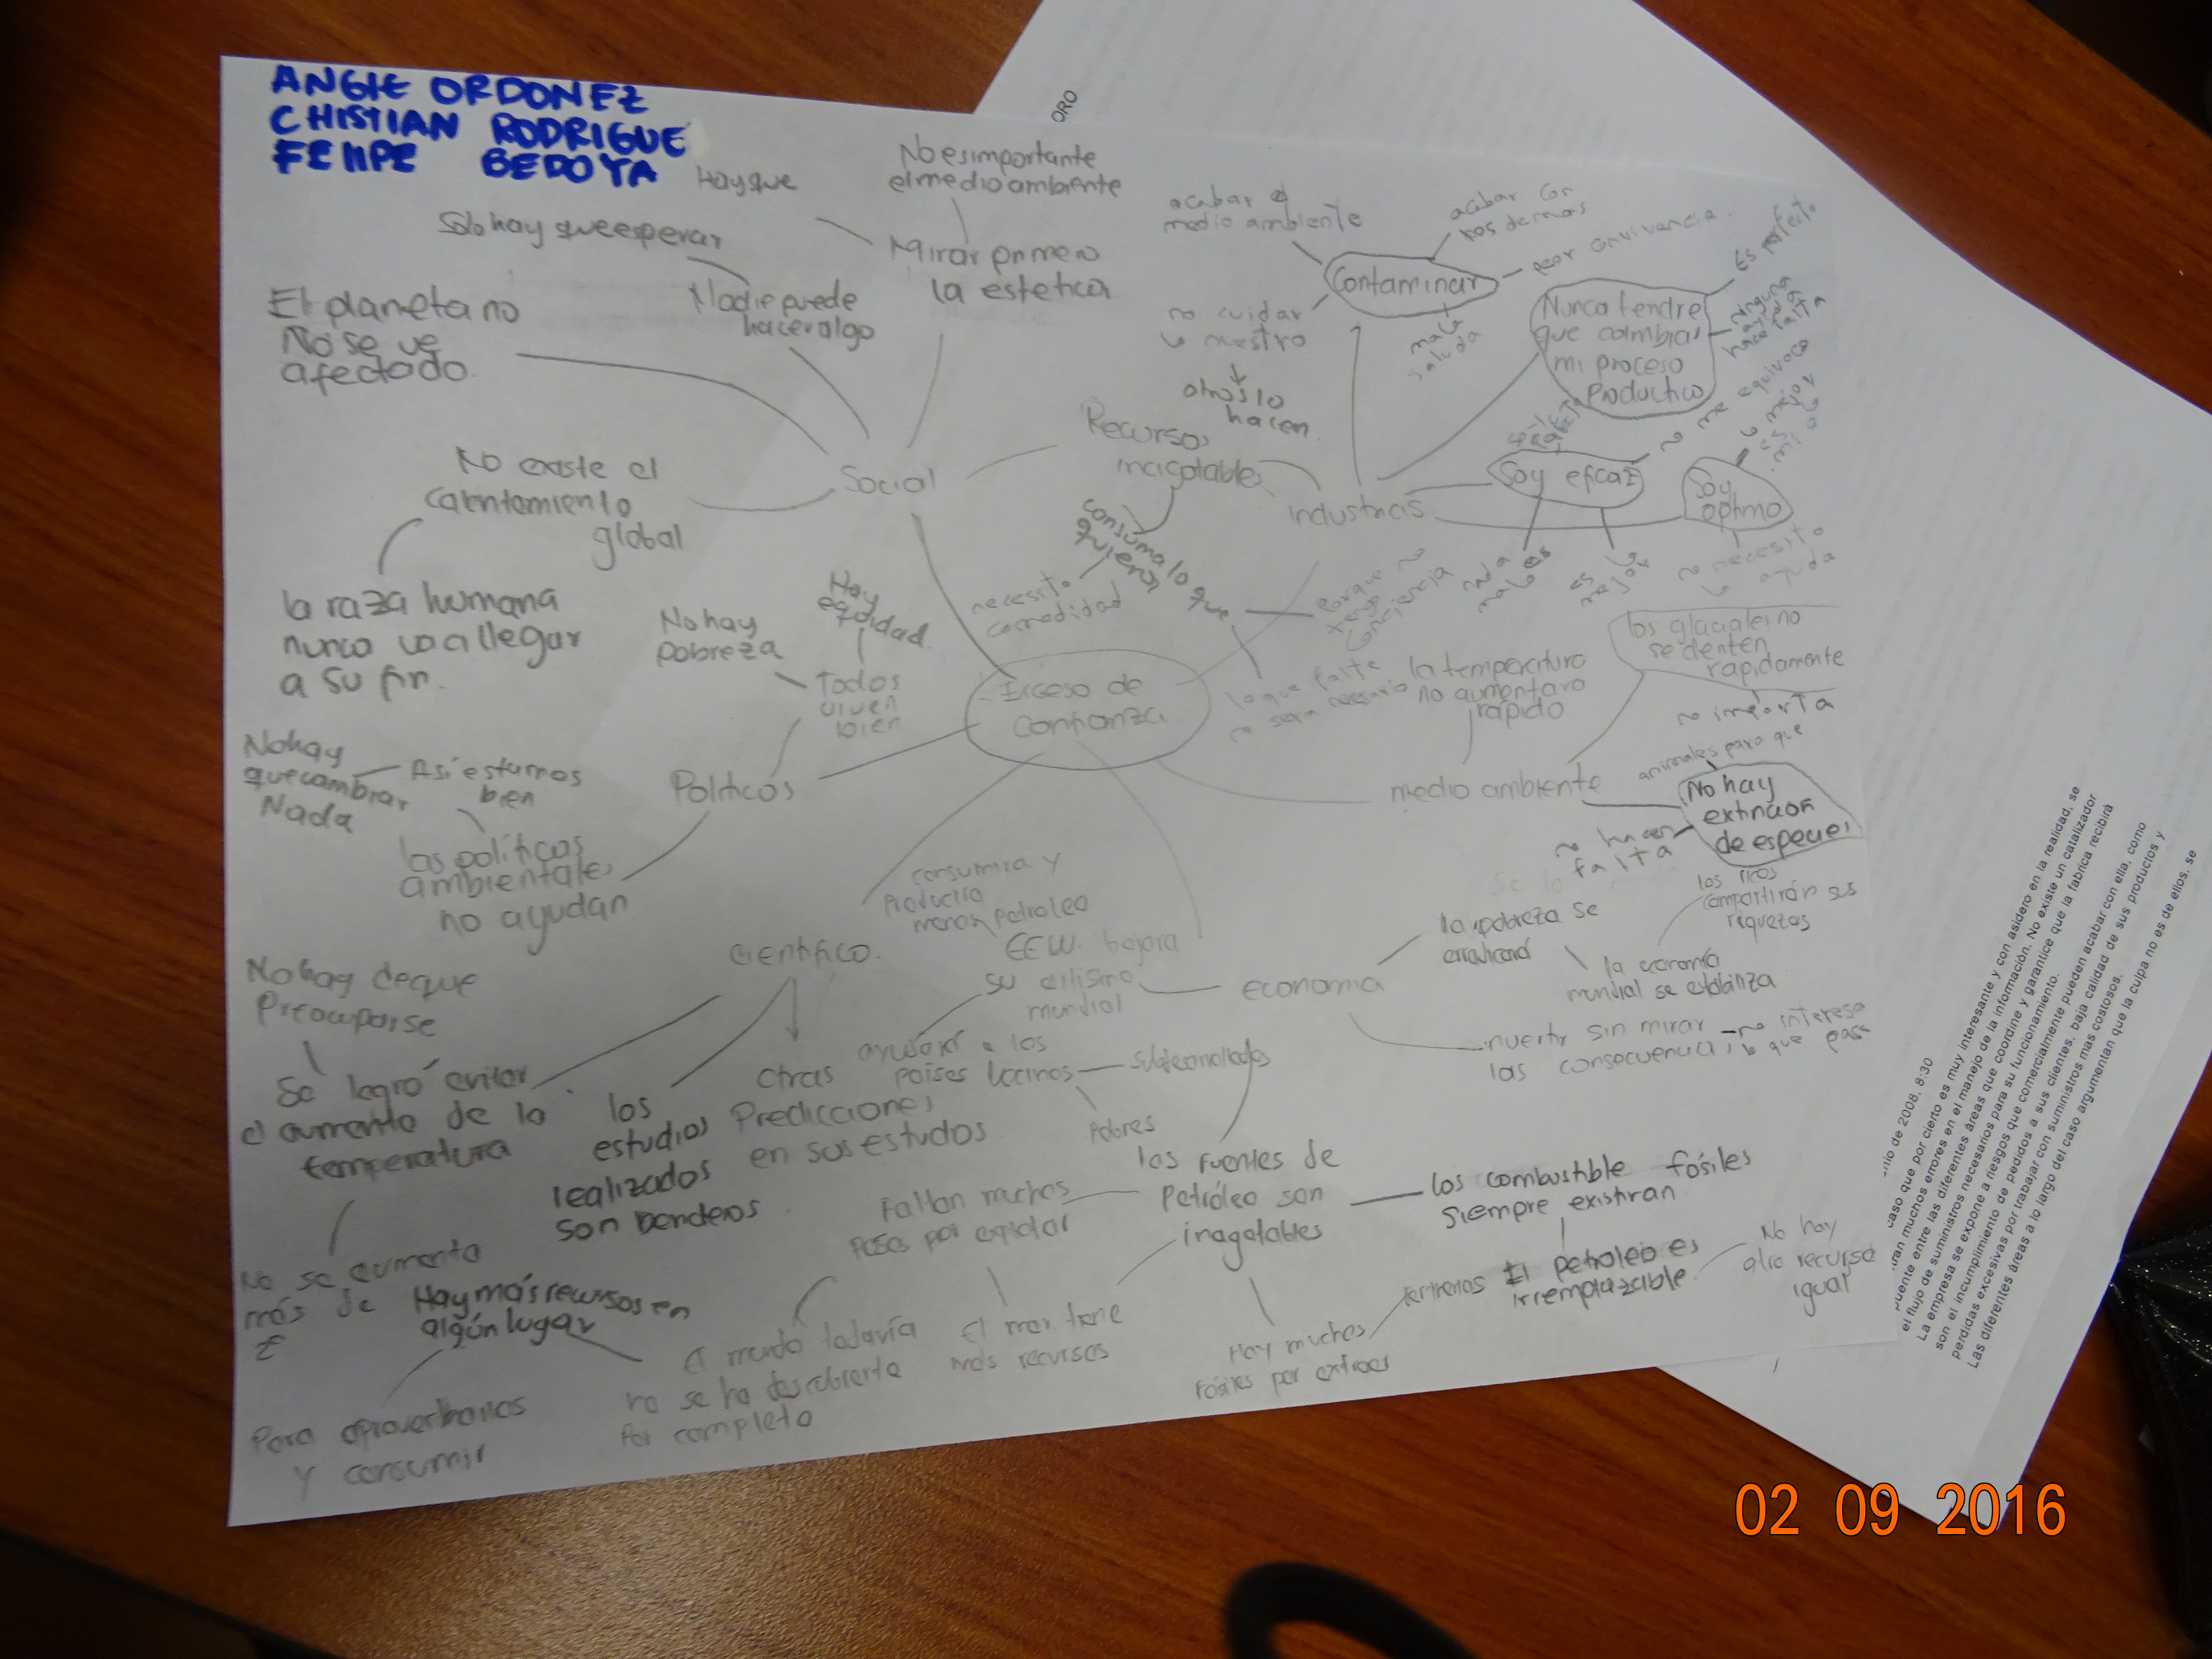 ANGIE ORDONEZ
CHISTIAN RODRIGUE
FELIPE BEDOYA
Hay que
No es importante
el medio ambiente
Solo hay que esperar
Mirar primero
la estetica
Nadie puede
hacer algo
El planeta no
No se ve
afectado.
No existe el
calentamiento
global
Social
la raza humana
nunca va a llegar
a su fin.
acabar el
medio ambiente
acabar con
los demas
peor convivencia.
Contaminar
no cuidar
lo nuestro
otros lo
hacen.
mala
saluda
Nunca tendre
que cambiar
mi proceso
Productivo
Es perfecto
ninguna
ayuda
hace falta
Recursos
inagotables
Industrias
Soy eficaz
no me equivoco
Soy
optimo
lo mejor
es mio
no necesito
la ayuda
es lo
mejor
nada
malo es
Consuma lo que
quieran
necesito
comodidad
Porque no
tengo
conciencia
lo que falte
no sera necesario
Exceso de
confianza
No hay
pobreza
Hay
equidad.
Todos
viven
bien
Politicos
No hay
que cambiar
Nada
Asi estamos
bien
las políticas
ambientales
no ayudan
la temperatura
no aumentara
rápido
los glaciales no
se derriten
rapidamente
medio ambiente
no importa
animales para que
No hay
extincion
de especies
no hacen
falta
Cientifico.
consumira y
Producira
menos petroleo
EEUU. bajara
su
mundial
economia
la pobreza se
erradicará
los ricos
compartirán sus
riquezas
la economía
mundial se estabiliza
invertir sin mirar
las consecuencias
no interesa
lo que pase
ayudará a los
países vecinos
Subdesarrollados
Pobres
No hay de que
Preocuparse
Se logró evitar
el aumento de la
temperatura
No se aumento
más de
2
los
estudios
realizados
son
otras
Predicciones
en sus estudios
Faltan muchos
pozos por explotar
las fuentes de
Petróleo son
inagotables
los combustible fósiles
siempre existiran
El petroleo es
irremplazable.
No hay
otro recurso
igual
Hay muchos
fósiles por extraer
terrenos
El mar tiene
más recursos
El mundo todavía
no se ha descubierto
Por completo
Hay más recursos en
algún lugar
Para aprovecharlos
y consumir
ORO
nio de 2008, 8:30
caso que por cierto es muy interesante y con asidero en la realidad, se
muchos errores en el manejo de la información. No existe un catalizador
puente entre las diferentes áreas que coordine y garantice que la fabrica recibirá
el flujo de suministros necesarios para su funcionamiento.
La empresa se expone a riesgos que comercialmente pueden acabar con ella, como
son el incumplimiento de pedidos a sus clientes, baja calidad de sus productos y
perdidas excesivas por trabajar con suministros mas costosos.
Las diferentes àreas a lo largo del caso argumentan que la culpa no es de ellos, se
02 09 2016